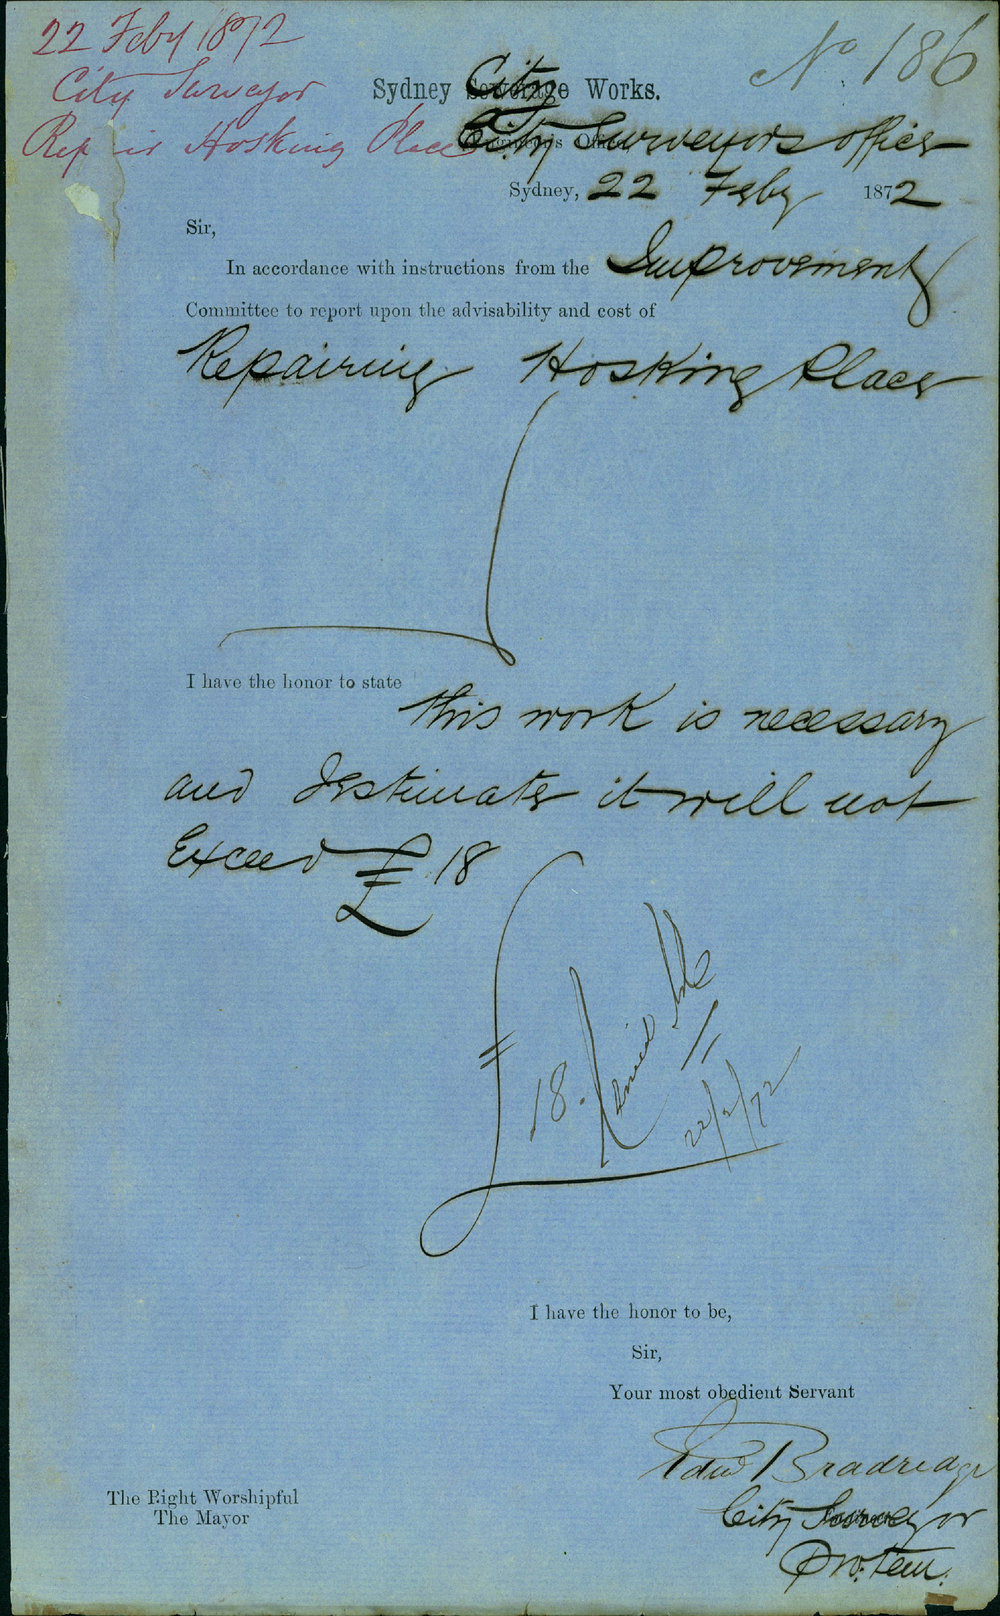 22 Feby 1872
City Surveyor
Rep ir Hosking Place
No 186
Sydney City Works.
City Surveyors office
Sydney, 22 Feby 1872
Sir,
In accordance with instructions from the Improvement
Committee to report upon the advisability and cost of
Repairing Hosking Place
I have the honor to state
this work is necessary
and I estimate it will not
Exceed £18
£18.
22/2/72
I have the honor to be,
Sir,
Your most obedient Servant
Edwd Bradridge
City Surveyor
Protem.
The Right Worshipful
The Mayor